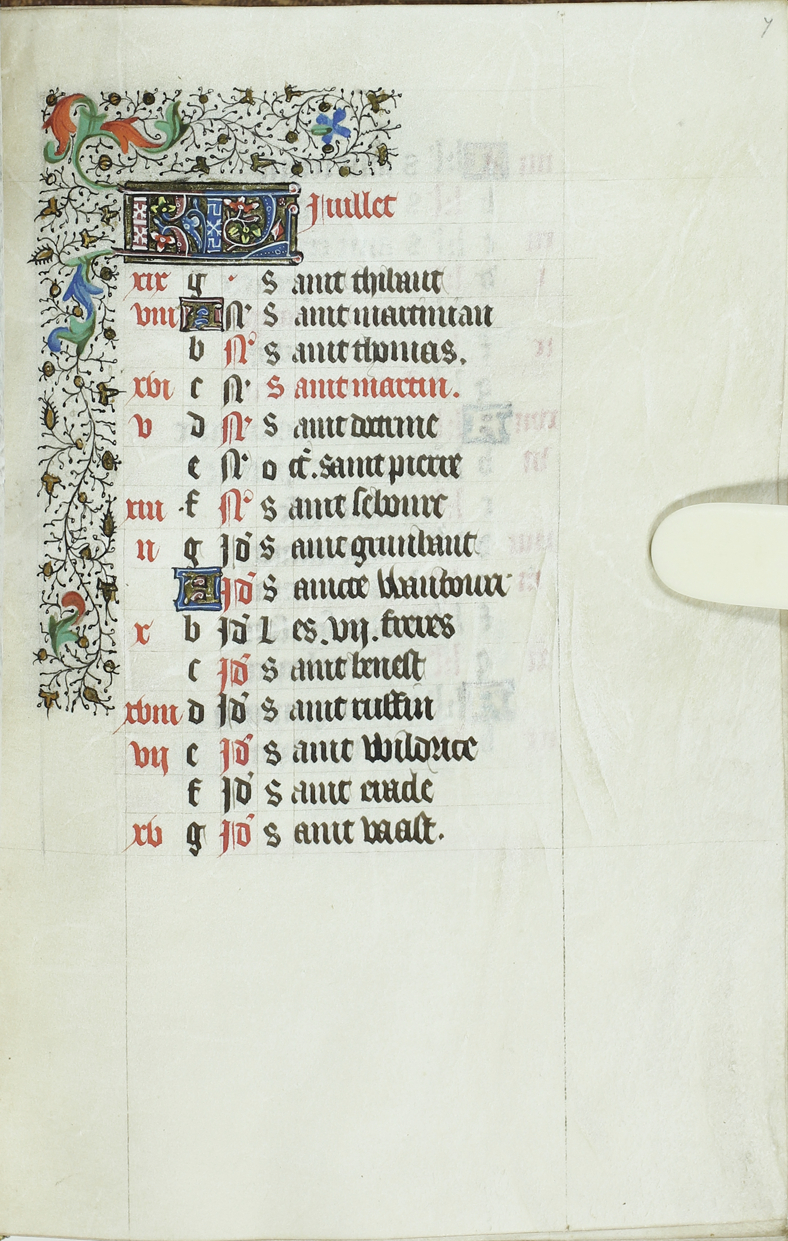 7
KL Juillet
xix g · Saint thibaut
viii A N Saint martinian
b N Saint thomas.
xvi c N Saint martin.
v d N Saint
e N oct. saint pierre
xiii f N Saint
ii g Id Saint
A Id Saincte
x b Id Les. vij. freres
c Id Saint benest
xviii d Id Saint ruffin
vij e Id Saint
f Id Saint
xv g Id Saint vaast.